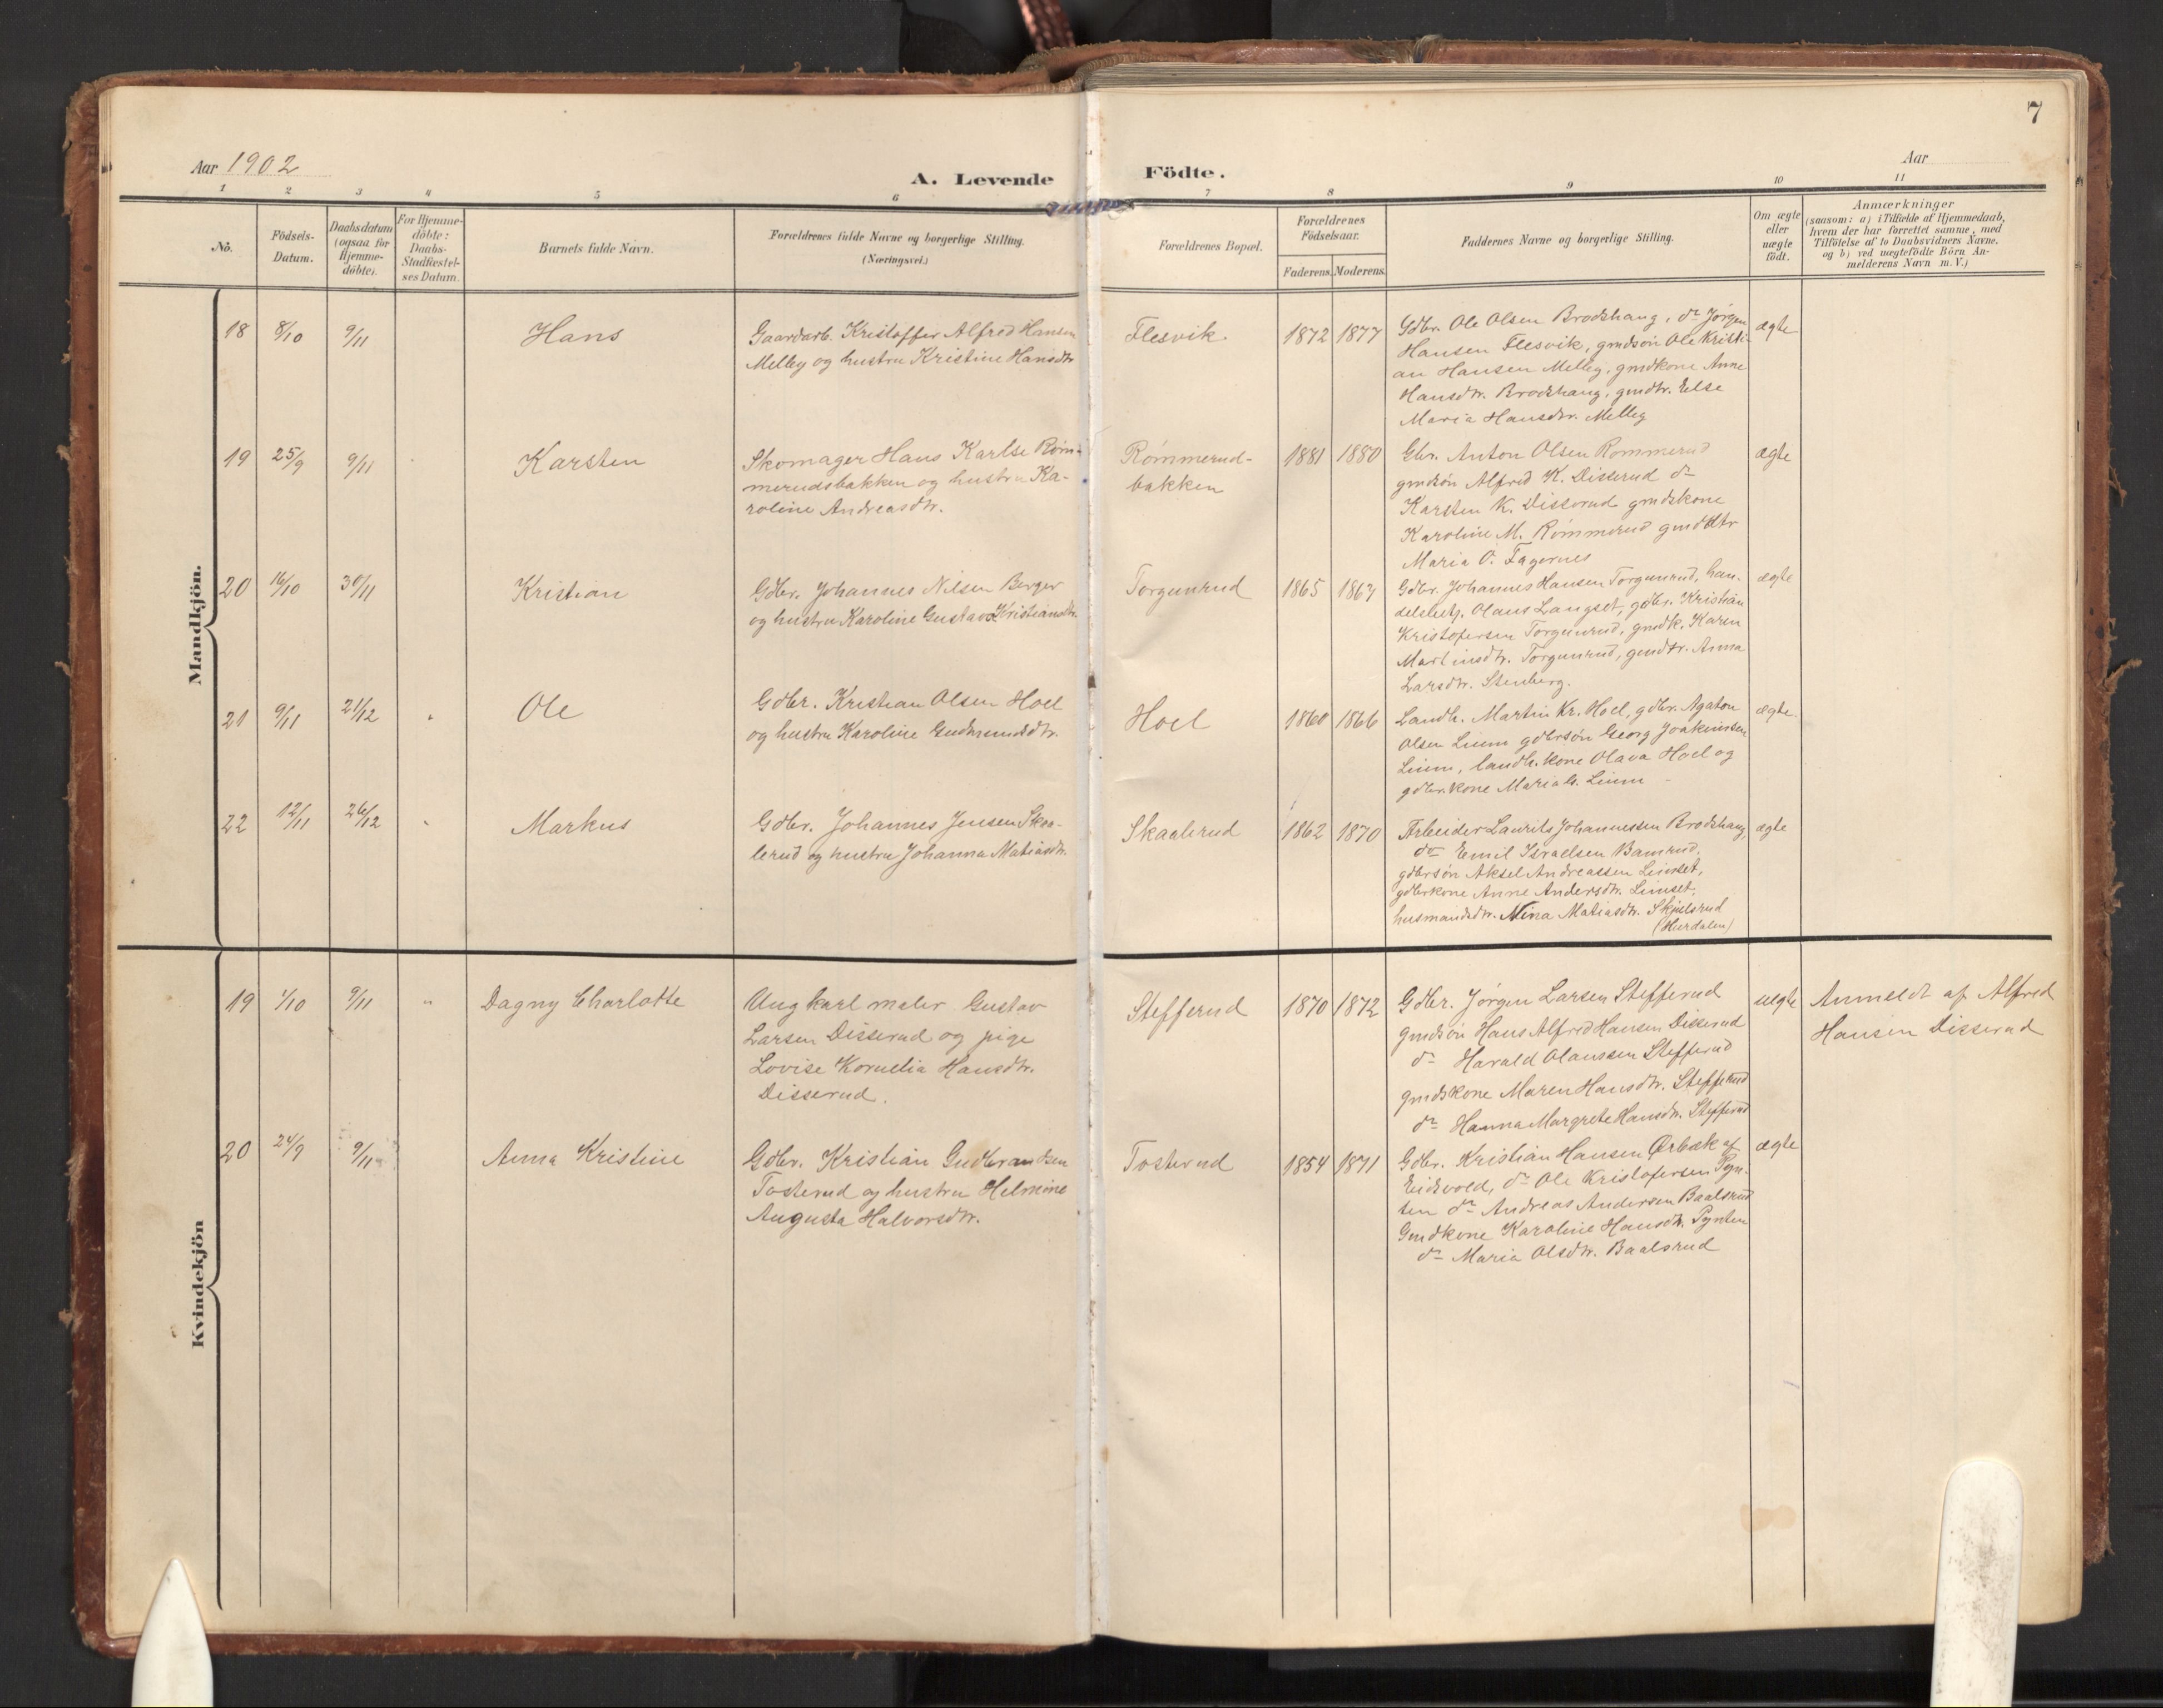 7
Aar 1902
A. Levende Födte.
Aar
1 2 3 4 5 6 7 8 9 10 11
No.
Födsels-
Datum.
Daabsdatum
(ogsaa for
Hjemme-
döbte).
For Hjemme-
döbte:
Daabs-
Stadfæstel-
ses Datum.
Barnets fulde Navn.
Forældrenes fulde Navne og borgerlige Stilling.
(Næringsvei.)
Forældrenes Bopæl.
Forældrenes
Födselsaar.
Faderens. Moderens.
Faddernes Navne og borgerlige Stilling.
Om ægte
eller
uægte
födt.
Anmærkninger
(saasom: a) i Tilfælde af Hjemmedaab,
hvem der har forrettet samme, med
Tilföielse af to Daabsvidners Navne,
og b) ved uægtefödte Börn An-
melderens Navn m. V.)
Mandkjön.
18 8/10 9/11 Hans
Gaardarb. Kristoffer Alfred Hansen
Melby og hustru Kristine Hansdtr
Flesvik 1872 1877
Gdbr. Ole Olsen Brodshaug, do Jørgen
Hansen Flesvik, gmdsön Ole Kristi-
an Hansen Melby, gmdkone Anne
Hansdtr. Brodshaug, gmdtr. Else
Maria Hansdtr. Melby
ægte
19 25/9 9/11 Karsten
Skomager Hans Karlse Røm-
merudsbakken og hustru Ka-
roline Andreasdtr.
Rømmerud-
bakken
1881 1880
Gbr. Anton Olsen Rømmerud
gmdsön Alfred K. Disserud do
Karsten K. Disserud gmdskone
Karoline M. Rømmerud gmddtr
Maria O. Fagernes
ægte
20 16/10 30/11 Kristian
Gdbr. Johannes Nilsen Berger
og hustru Karoline Gustava Kristiansdtr.
Torgunrud 1865 1867
Gdbr. Johannes Hansen Torgunrud, han-
delsbetj. Olaus Langset, gdbr. Kristian
Kristofersen Torgunrud, gmdk. Karen
Martinsdtr. Torgunrud, gmdtr. Anna
Larsdtr. Stenberg.
ægte
21 9/11 21/12 Ole
Gdbr. Kristian Olsen Hoel
og hustru Karoline Gudmundsdtr.
Hoel 1860 1866
Landh. Martin Kr. Hoel, gdbr. Agaton
Olsen Linm gdbrsön Georg Joakimsen
Linm, landh. kone Olava Hoel og
gdbr. kone Maria Linm
ægte.
22 12/11 26/12 Markus
Gdbr. Johannes Jensen Skaa-
lerud og hustru Johanna Matiasdtr.
Skaalerud 1862 1870
Arbeider Laurits Johannessen Brodshaug
do Emil Israelsen Bamrud,
gdbrsön Aksel Andreassen Limset,
gdbrkone Anne Andersdtr. Limset,
husmandsdtr. Nina Matiasdtr. Skjelsrud
(Hurdalen)
ægte
Kvindekjön
19 1/10 9/11 " Dagny Charlotte
Ungkarl maler Gustav
Larsen Disserud og pige
Lovise Kornelia Hansdtr.
Disserud.
Stefferud 1870 1872
Gdbr. Jørgen Larsen Stefferud
gmdsön Hans Alfred Hansen Disserud
do Harald Olaussen Stefferud
gmdskone Maren Hansdtr. Stefferud
do Hanna Margrete Hansdtr. Stefferud
uegte
Anmeldt af Alfred
Hansen Disserud
20 24/9 9/11 Anna Kristine
Gdbr. Kristian Gudbrandsen
Tosterud og hustru Helmine
Augusta Halvorsdtr.
Tosterud 1854 1871
Gdbr. Kristian Hansen Ørbæk af
Eidsvold, do Ole Kristofersen Pyn-
ten do Andreas Andersen Baalsrud
Gmdkone Karoline Hansdtr. Pynten
do Maria Olsdtr. Baalsrud
ægte